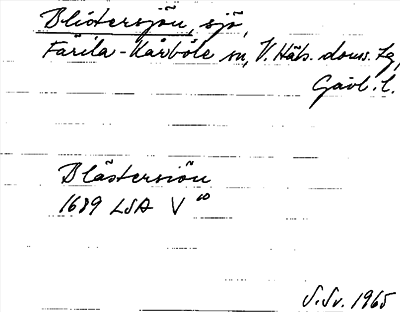 Blötersjön, sjö,
Färila-Kårböle sn, V. Häls. doms. tg,
Gävl. l.
Blästersiön
1689 LSA V 10
S.Sv. 1965